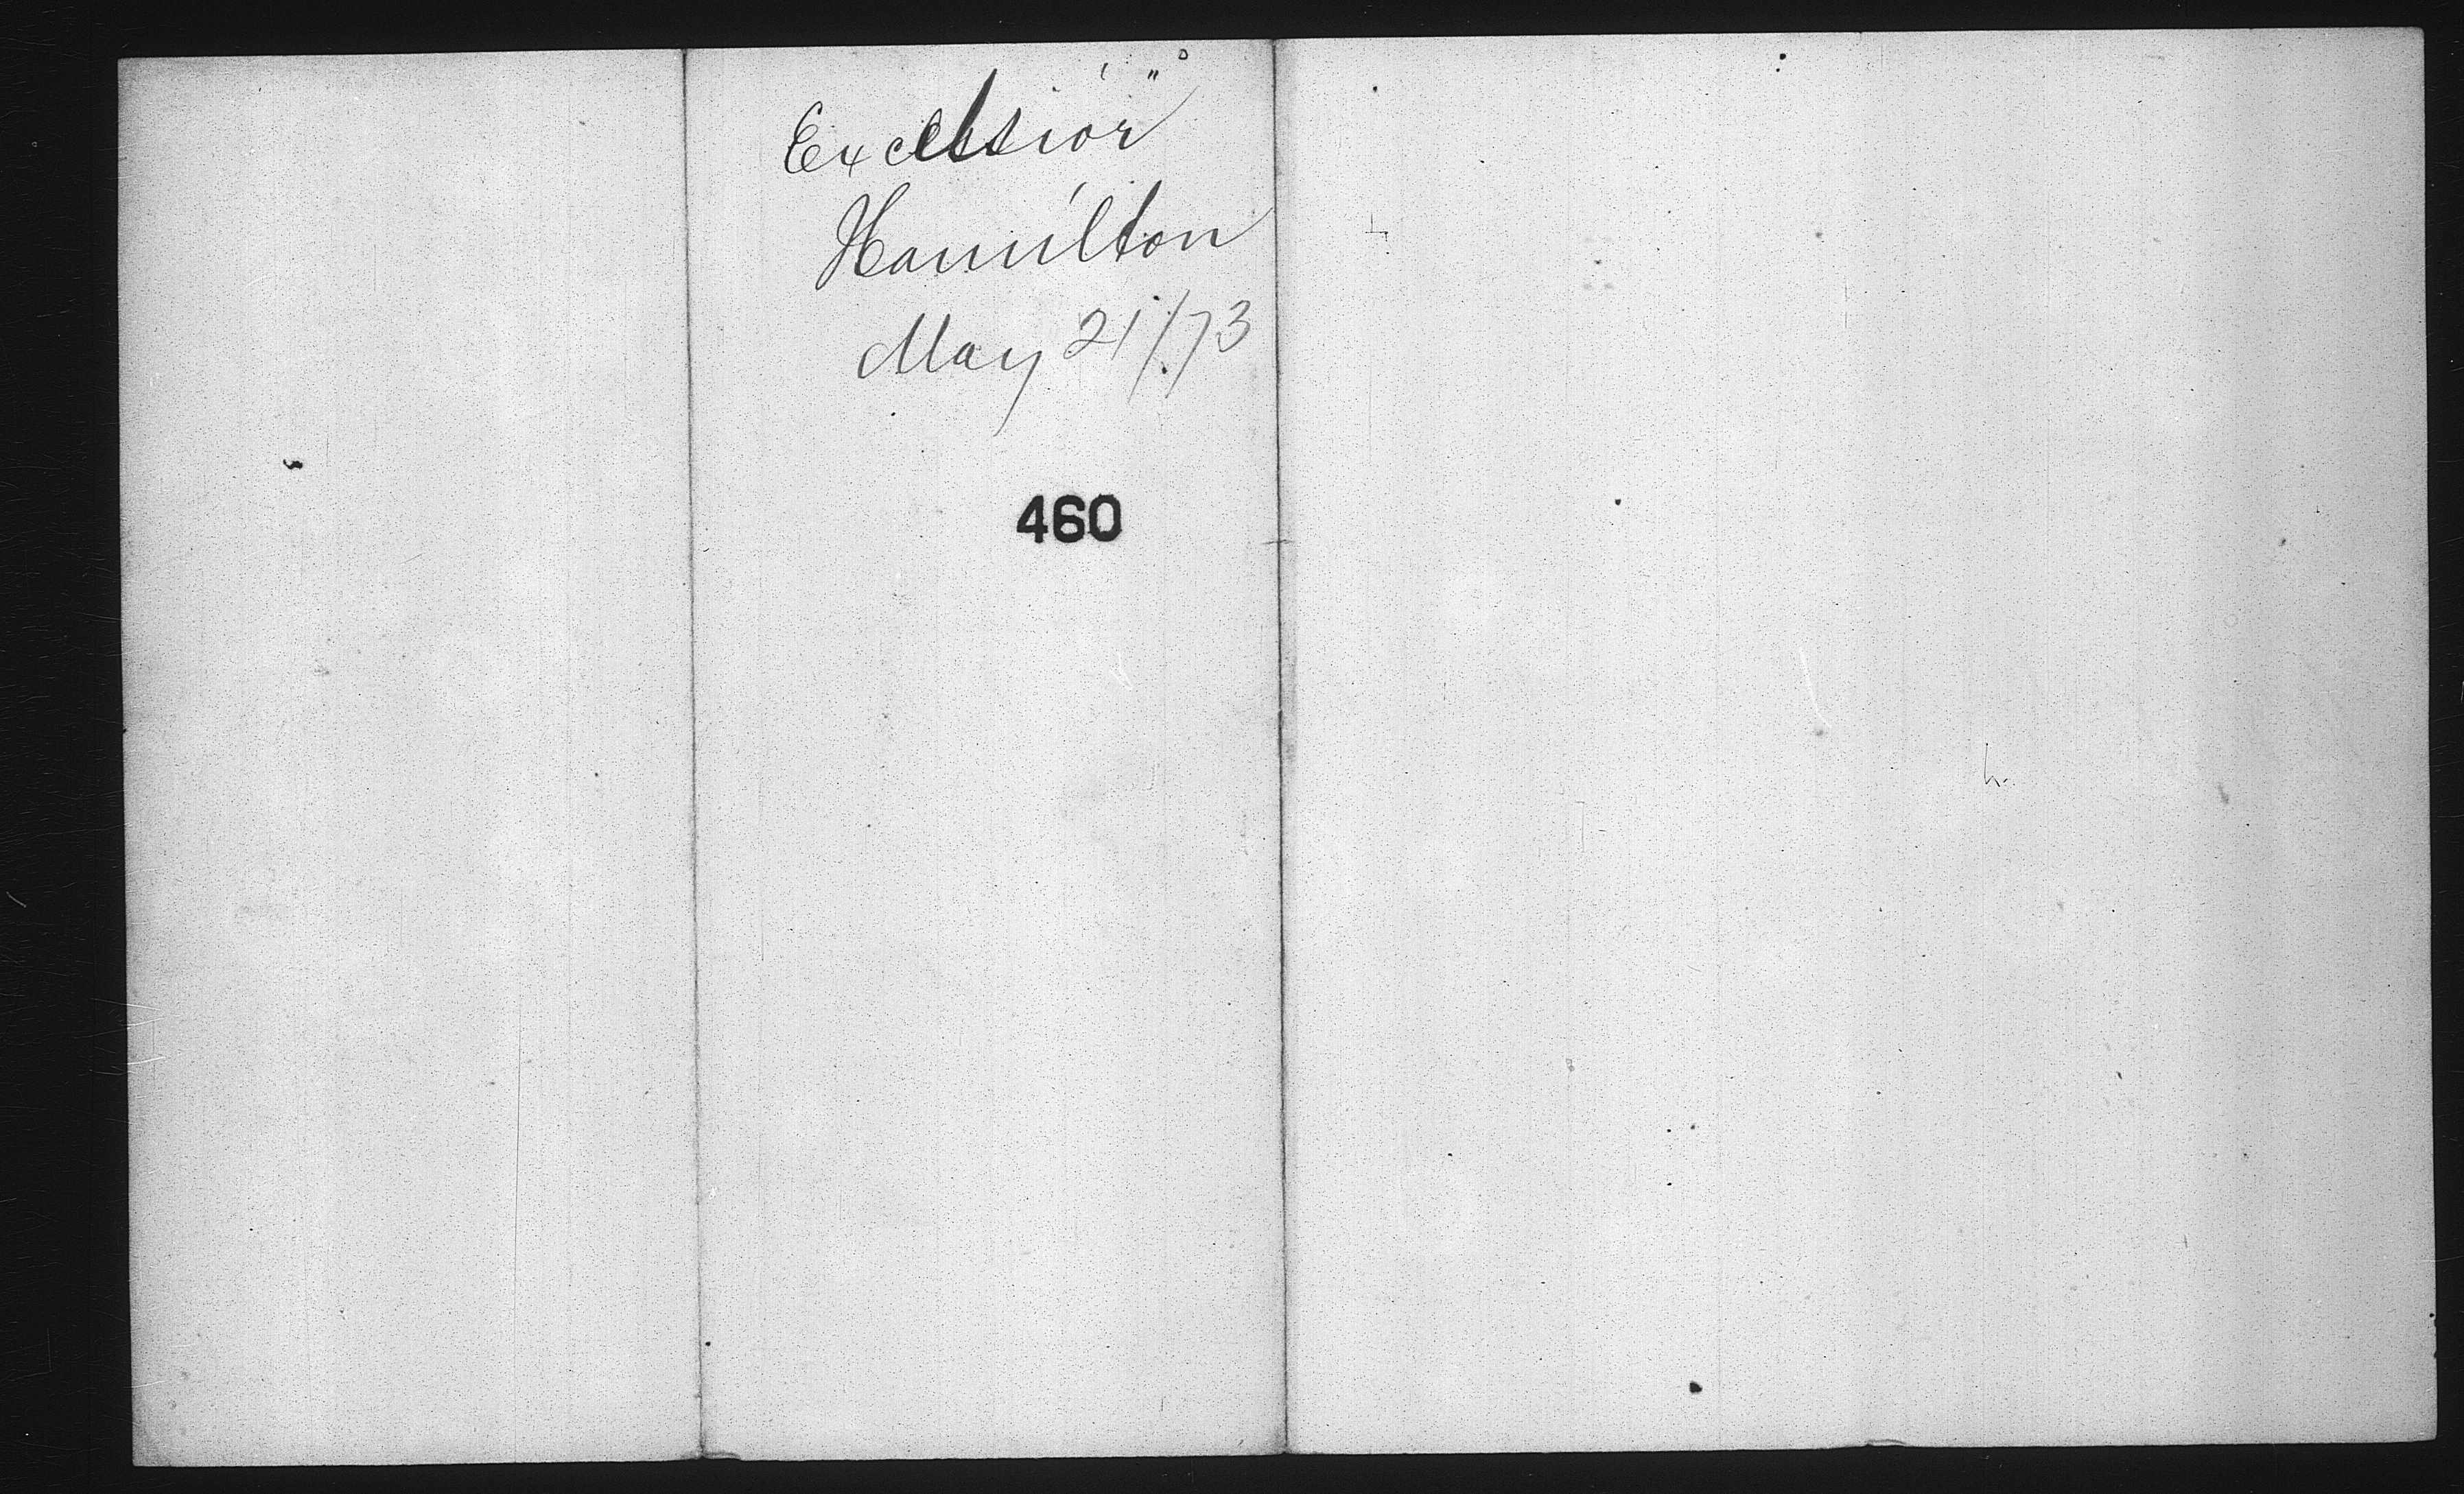 Excelsior"
Hamilton
May 21/73
460